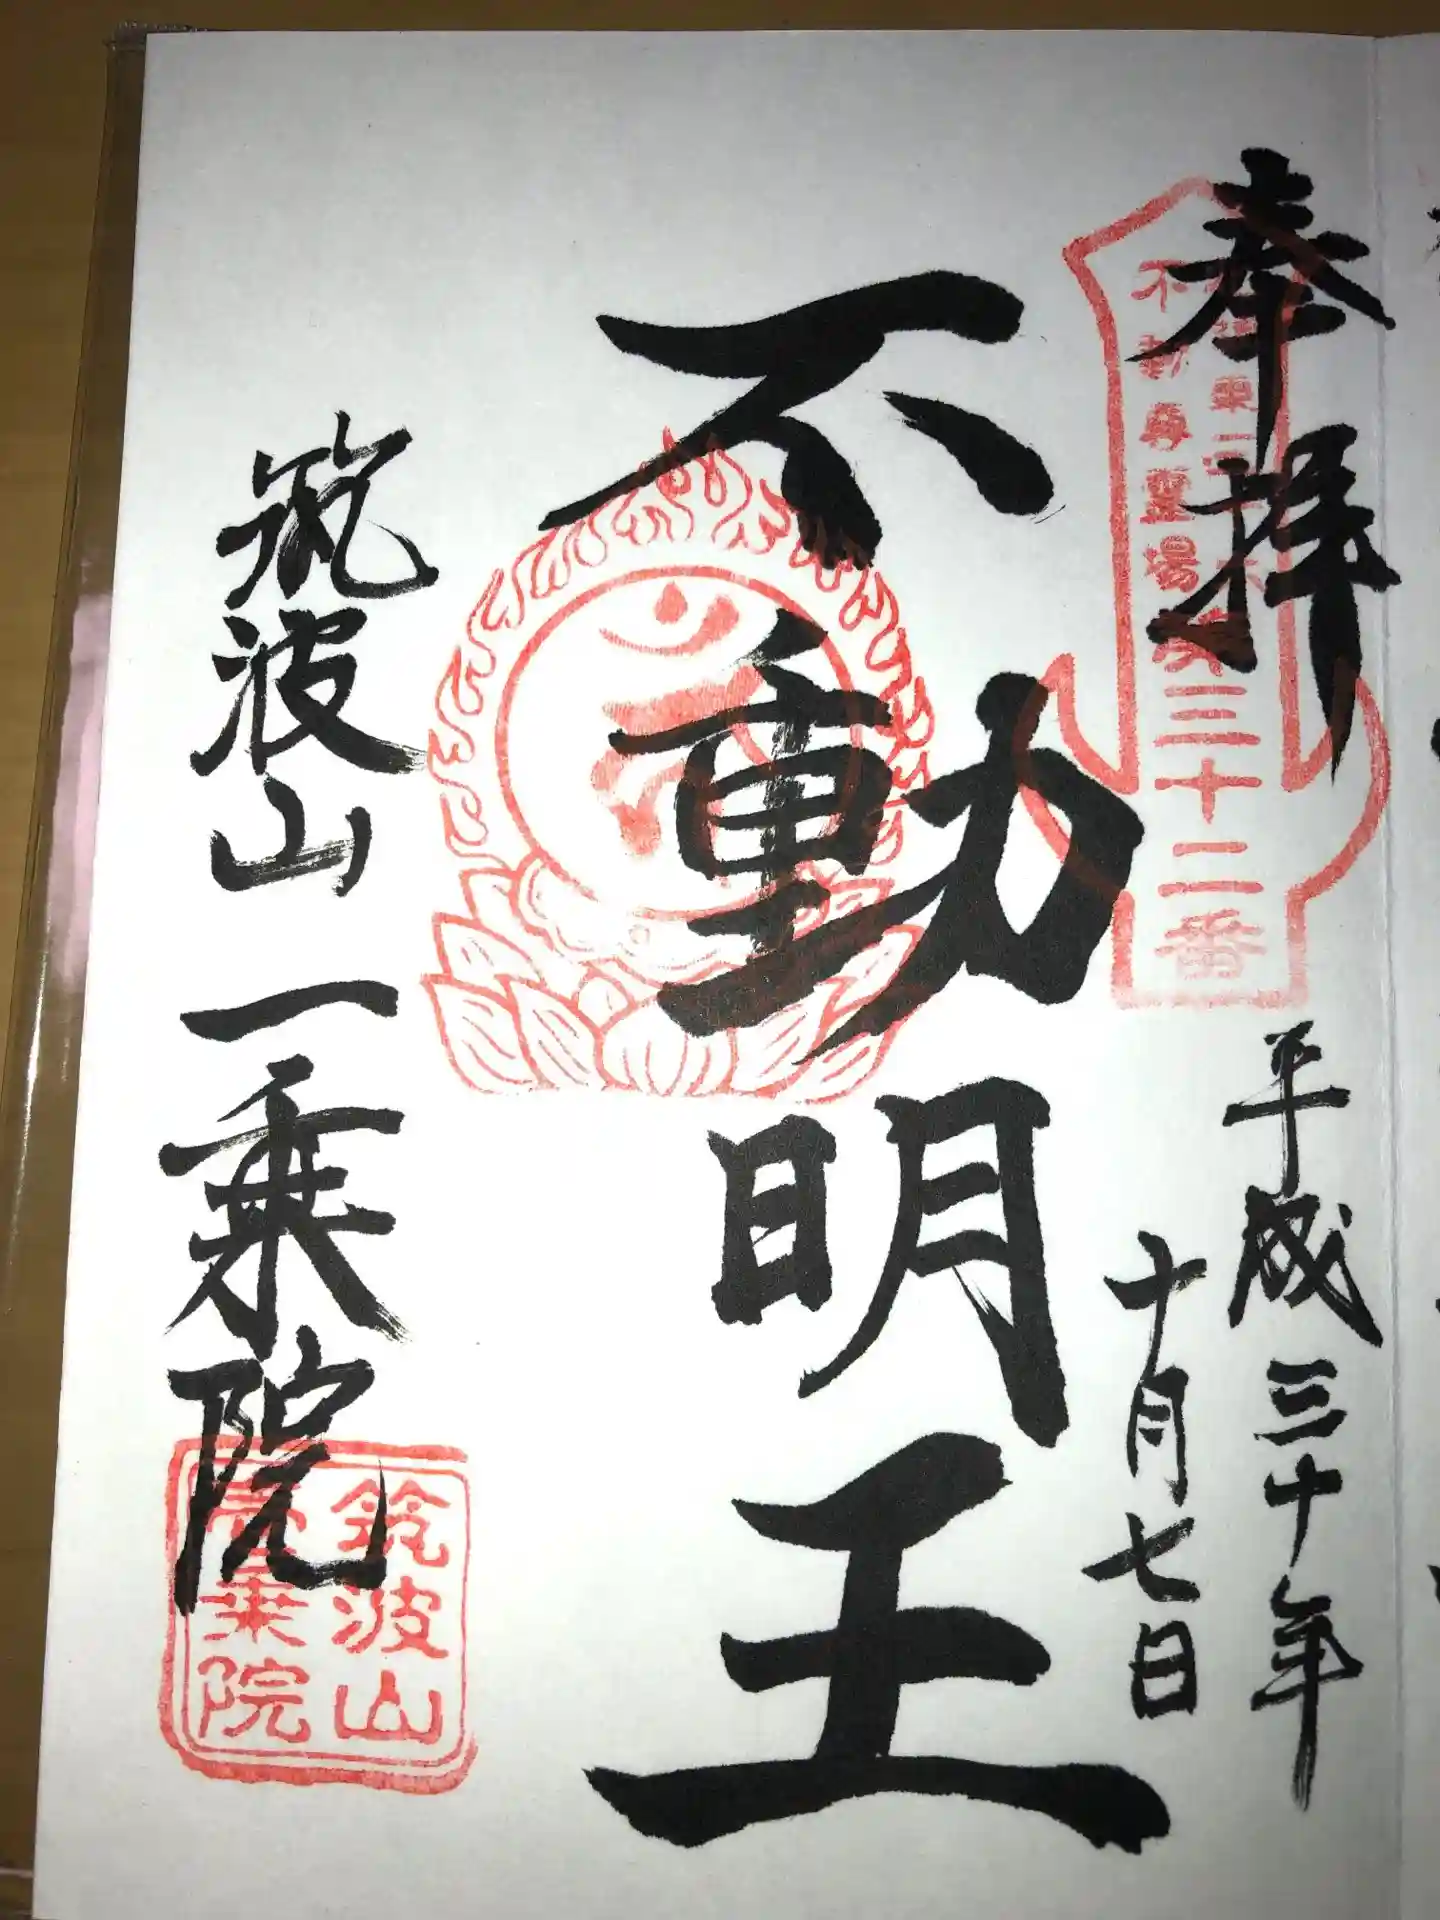 奉拝
三十二番
不動尊霊場
平成三十年
十月七日
不動明王
筑波山一乗院
筑波山
乗院